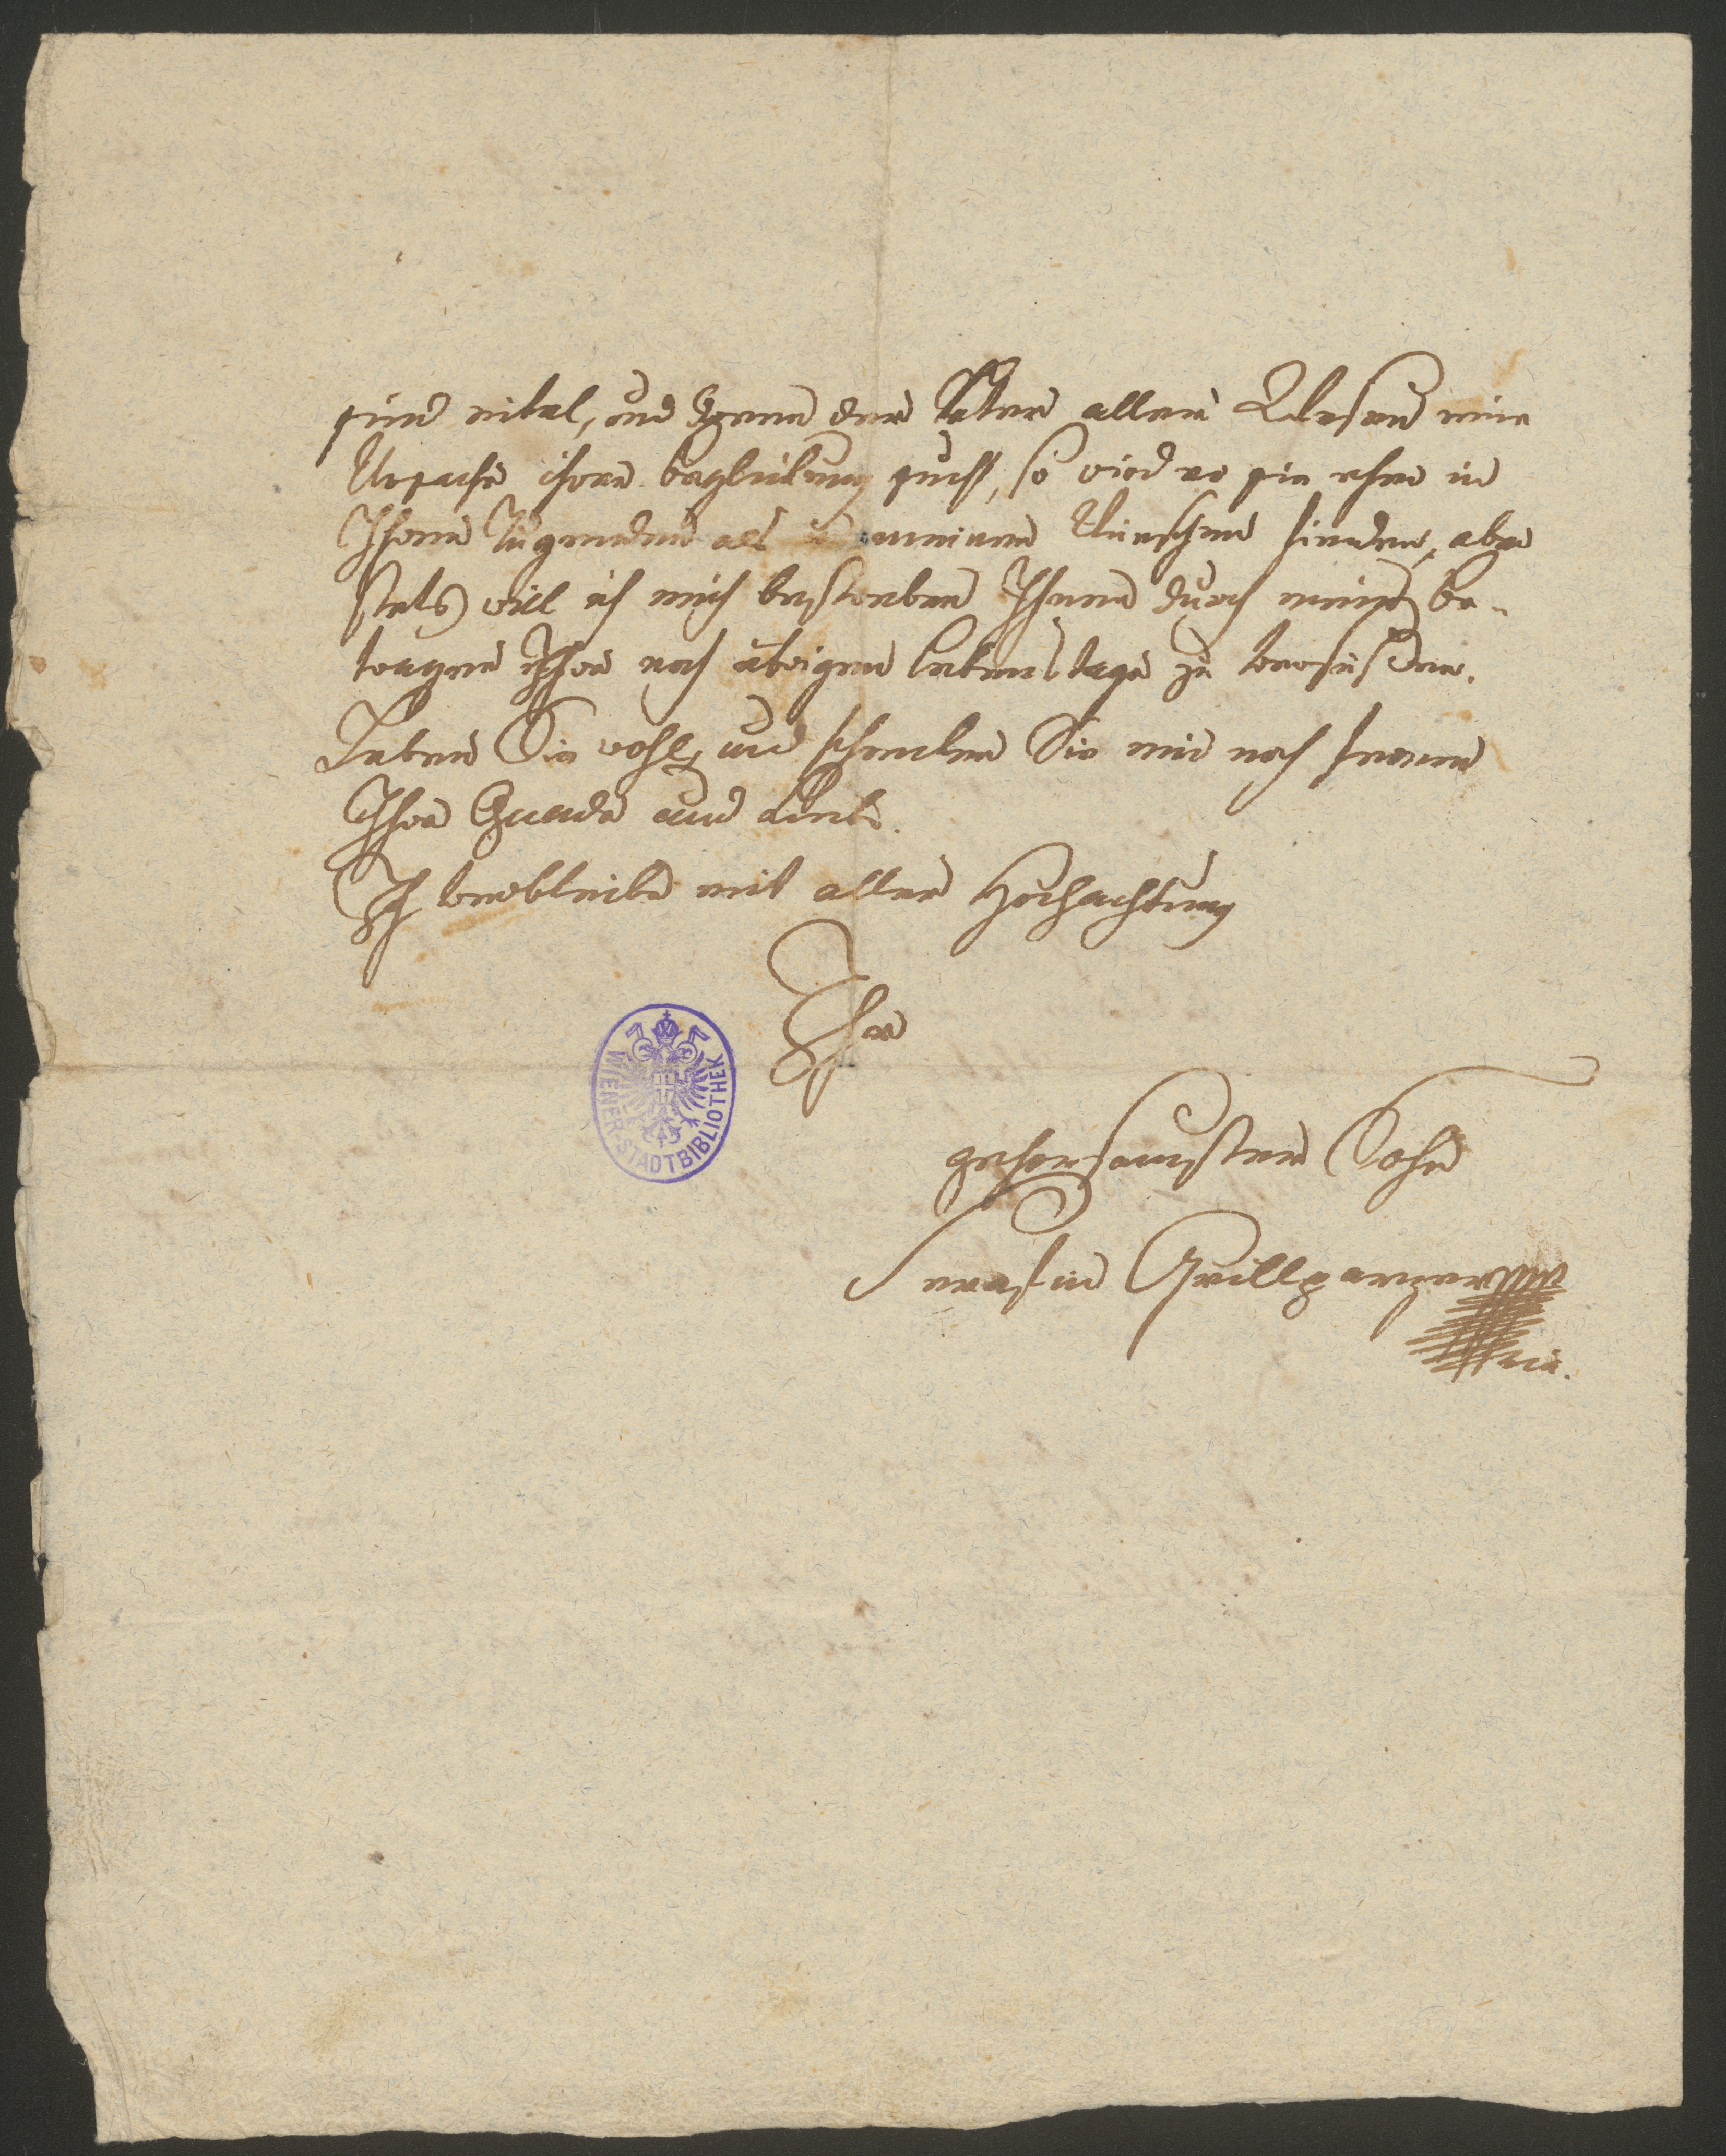 sind eitel, und wenn der Vater aller Wesen eine
Ursache ihrer beglückung sucht, so wird er sie eher in
Ihren Tugenden als in meinen Wünschen finden, aber
stets will ich mich bestreben Ihnen durch mein be-
tragen Ihre noch übrigen lebenstage zu versüßen.
Leben Sie wohl, und schenken Sie mir noch ferner
Ihre Gnade und Liebe.
Ich verbleibe mit aller Hochachtung
Ihr
gehorsamster Sohn
Grillparzer
WIENER STADTBIBLIOTHEK